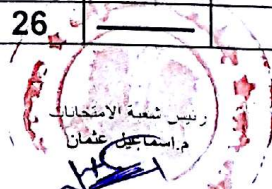 26
رئيس شعبة الامتحانات
م.اسماعيل عثمان